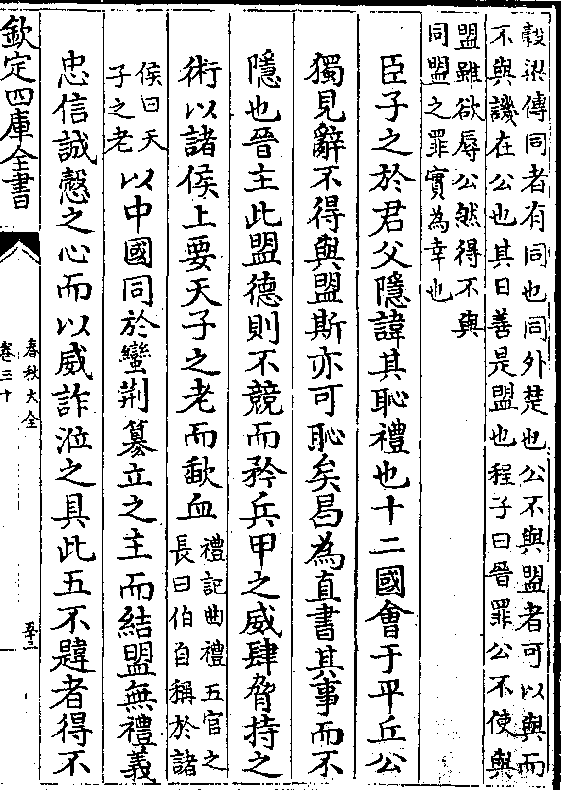 穀梁傳同者有同也同外楚也公不與盟者可以與而
不與譏在公也其日善是盟也程子曰晉罪公不使與
盟雖欲辱公然得不與
同盟之罪實為幸也
臣子之於君父隱諱其恥禮也十二國會于平丘公
獨見辭不得與盟斯亦可恥矣曷為直書其事而不
隱也晉主此盟德則不競而矜兵甲之威肆脅持之
術以諸侯上要天子之老而歃血
禮記曲禮五官之
長曰伯自稱於諸
侯曰天
子之老
以中國同於蠻荆篡立之主而結盟無禮義
忠信誠慤之心而以威詐涖之具此五不韙者得不
欽定四庫全書
春秋大全
卷三十
至三